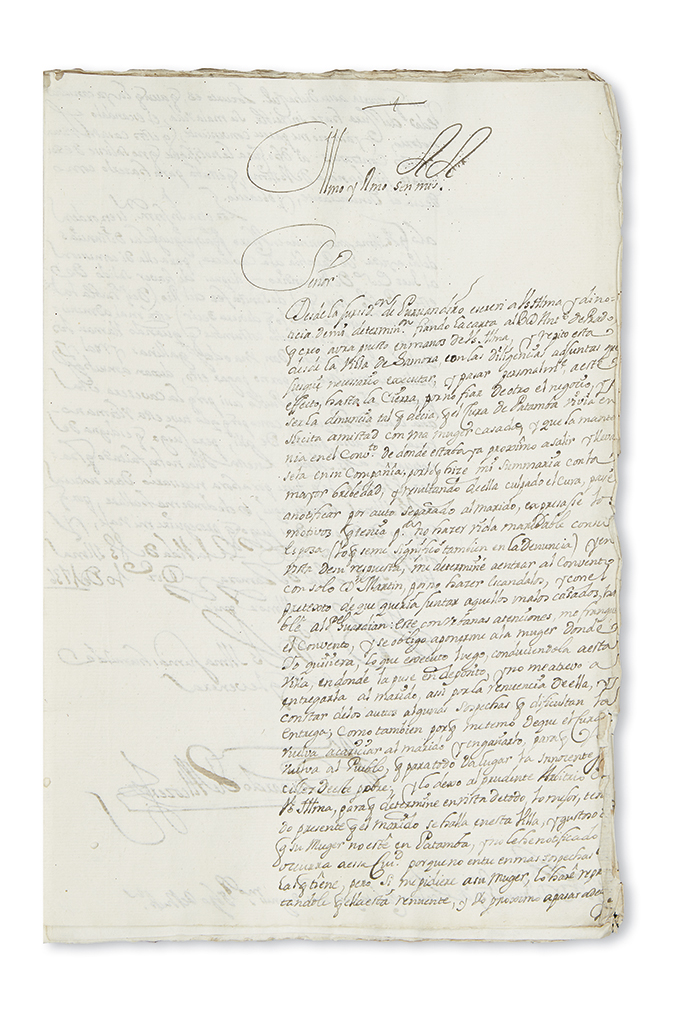 Illmo y Rmo Señ mio.
Señor
Desde la Jurisdn. de Puruandiro escreví a VSIllma, y di no-
ticia de mi determinn. fiando la carta al Br. Dn. de Prado
q creo avra puesto en manos de VSIllma, y repito esta
desde la Villa de Samora, con las diligencias adjuntas que
Jusgué necesario executar, y pasar personalmte. a este
effecto, hasta la Cierra, por no fiar de otro el negocio,
ser la denuncia tal q decia q el Cura de Patamba vivia en
ilicita amistad con una muger casada, y que la mante
nia en el Convto. de donde estaba ya proximo a salir y lleva
sela en su Compañia, por lo q hize mi Summaria con la
mayor brebedad, y resultando de ella culpado el Cura, pasé
a notificar por auto separado al marido, expresase los
motivos q tenia pa. no hazer vida maridable con su
Esposa (lo q se me significó tambien en la denuncia) y en
vista de su respuesta, me determiné a entrar al Convento
con solo Dn. Martin, por no hazer escandalo, y con el
pretexto de que queria juntar aquellos malos casados, ha
blé al Pe. Guardian: Este con urbanas atenciones, me franqueó
el Convento, y se obligó a ponerme a la muger donde
Yo quisiera, lo que executó luego, conduciendola a esta
Villa, en donde la puse en deposito, y no me atrevo a
entregarla al marido, assi por la renuencia de ella, y
constar de los autos algunas sospechas q dificultan la
entrega; Como tambien porq me temo de que el Cura
buelva a acariciar al marido y engañarlo, para q
buelva al Pueblo, q para todo da lugar la innocente
de este pobre; y lo dexo al prudente Arbitrio
VSIllma, para q determine en vista de todo, lo mejor, tenien
do presente q el marido se halla en esta Villa, y gustoso
q su Muger no esté en Patamba, y no le he notificado
ocurra a essa Ciud. porque no entre en mas sospechas
las q tiene, pero, Si me pidiere a su muger, lo haré repre
tandole q ella está renuente, y Yo proximo a pasar a